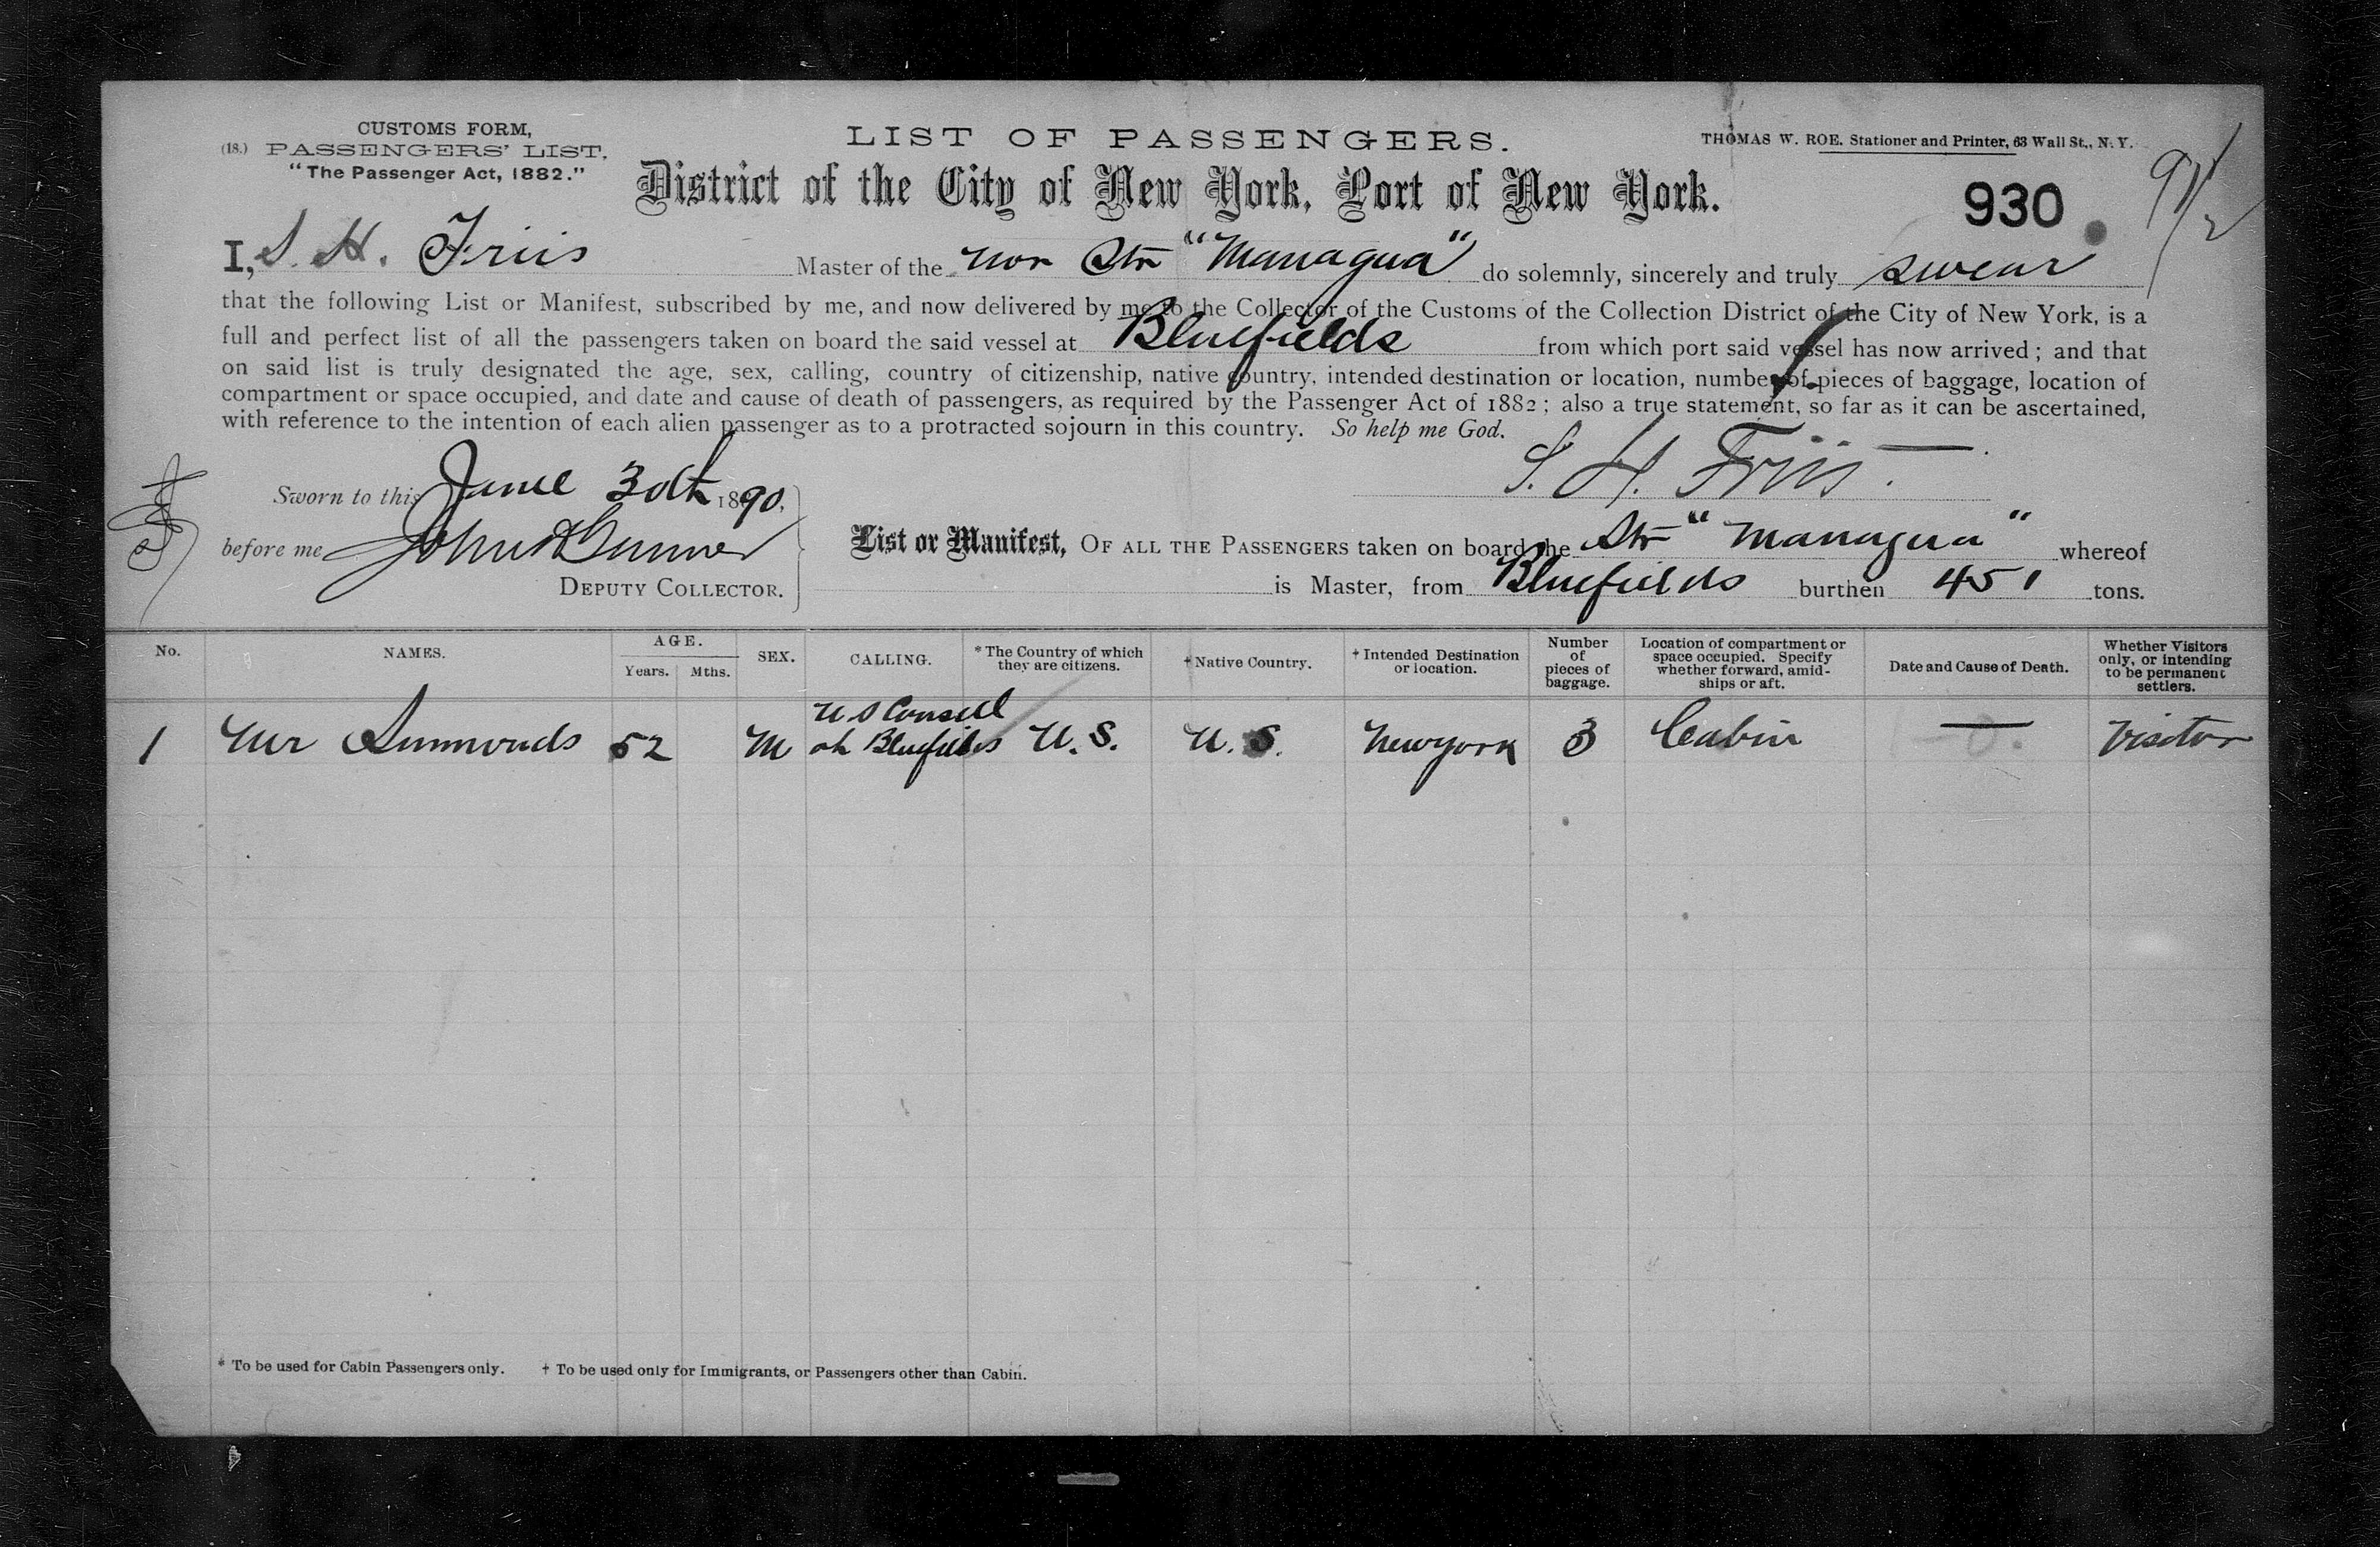 CUSTOMS FORM,
(18.) PASSENGERS' LIST.
"The Passenger Act, 1882."
LIST OF PASSENGERS.
THOMAS W. ROE. Stationer and Printer, 63 Wall St., N. Y.
District of the City of New York, Port of New York.
930
I, S. H. Friis Master of the Nor Str "Managua" do solemnly, sincerely and truly swear
that the following List or Manifest, subscribed by me, and now delivered by me to the Collector of the Customs of the Collection District of the City of New York, is a
full and perfect list of all the passengers taken on board the said vessel at Bluefields from which port said vessel has now arrived; and that
on said list is truly designated the age, sex, calling, country of citizenship, native country, intended destination or location, number of pieces of baggage, location of
compartment or space occupied, and date and cause of death of passengers, as required by the Passenger Act of 1882; also a true statement, so far as it can be ascertained,
with reference to the intention of each alien passenger as to a protracted sojourn in this country. So help me God.
S. H. Friis.
Sworn to this June 30th 1890,
before me John
DEPUTY COLLECTOR.
List or Manifest, OF ALL THE PASSENGERS taken on board the Str "Managua" whereof
is Master, from Bluefields burthen 451 tons.
No. NAMES. AGE. Years. Mths. SEX. CALLING. * The Country of which they are citizens. † Native Country. † Intended Destination or location. Number of pieces of baggage. Location of compartment or space occupied. Specify whether forward, amid-ships or aft. Date and Cause of Death. Whether Visitors only, or intending to be permanent settlers.
U S Consul
1 Mr Simmonds 52 M at Bluefields U. S. U. S. Newyork 3 Cabin — Visitor
* To be used for Cabin Passengers only. † To be used only for Immigrants, or Passengers other than Cabin.